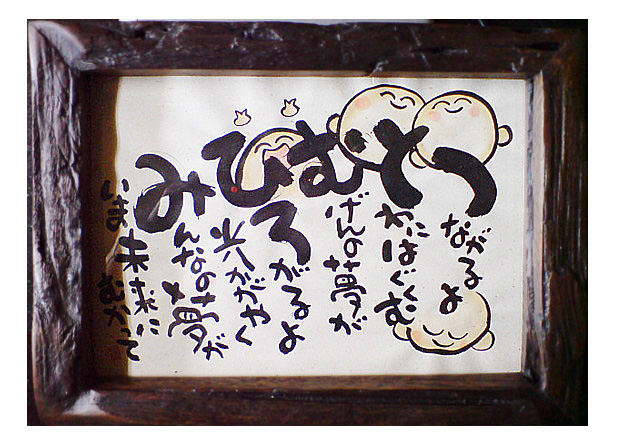 つながるよ
かにはぐくむ
むげんの夢が
ひろがるよ
光かがやく
みんなの夢が
いま未来にむかって